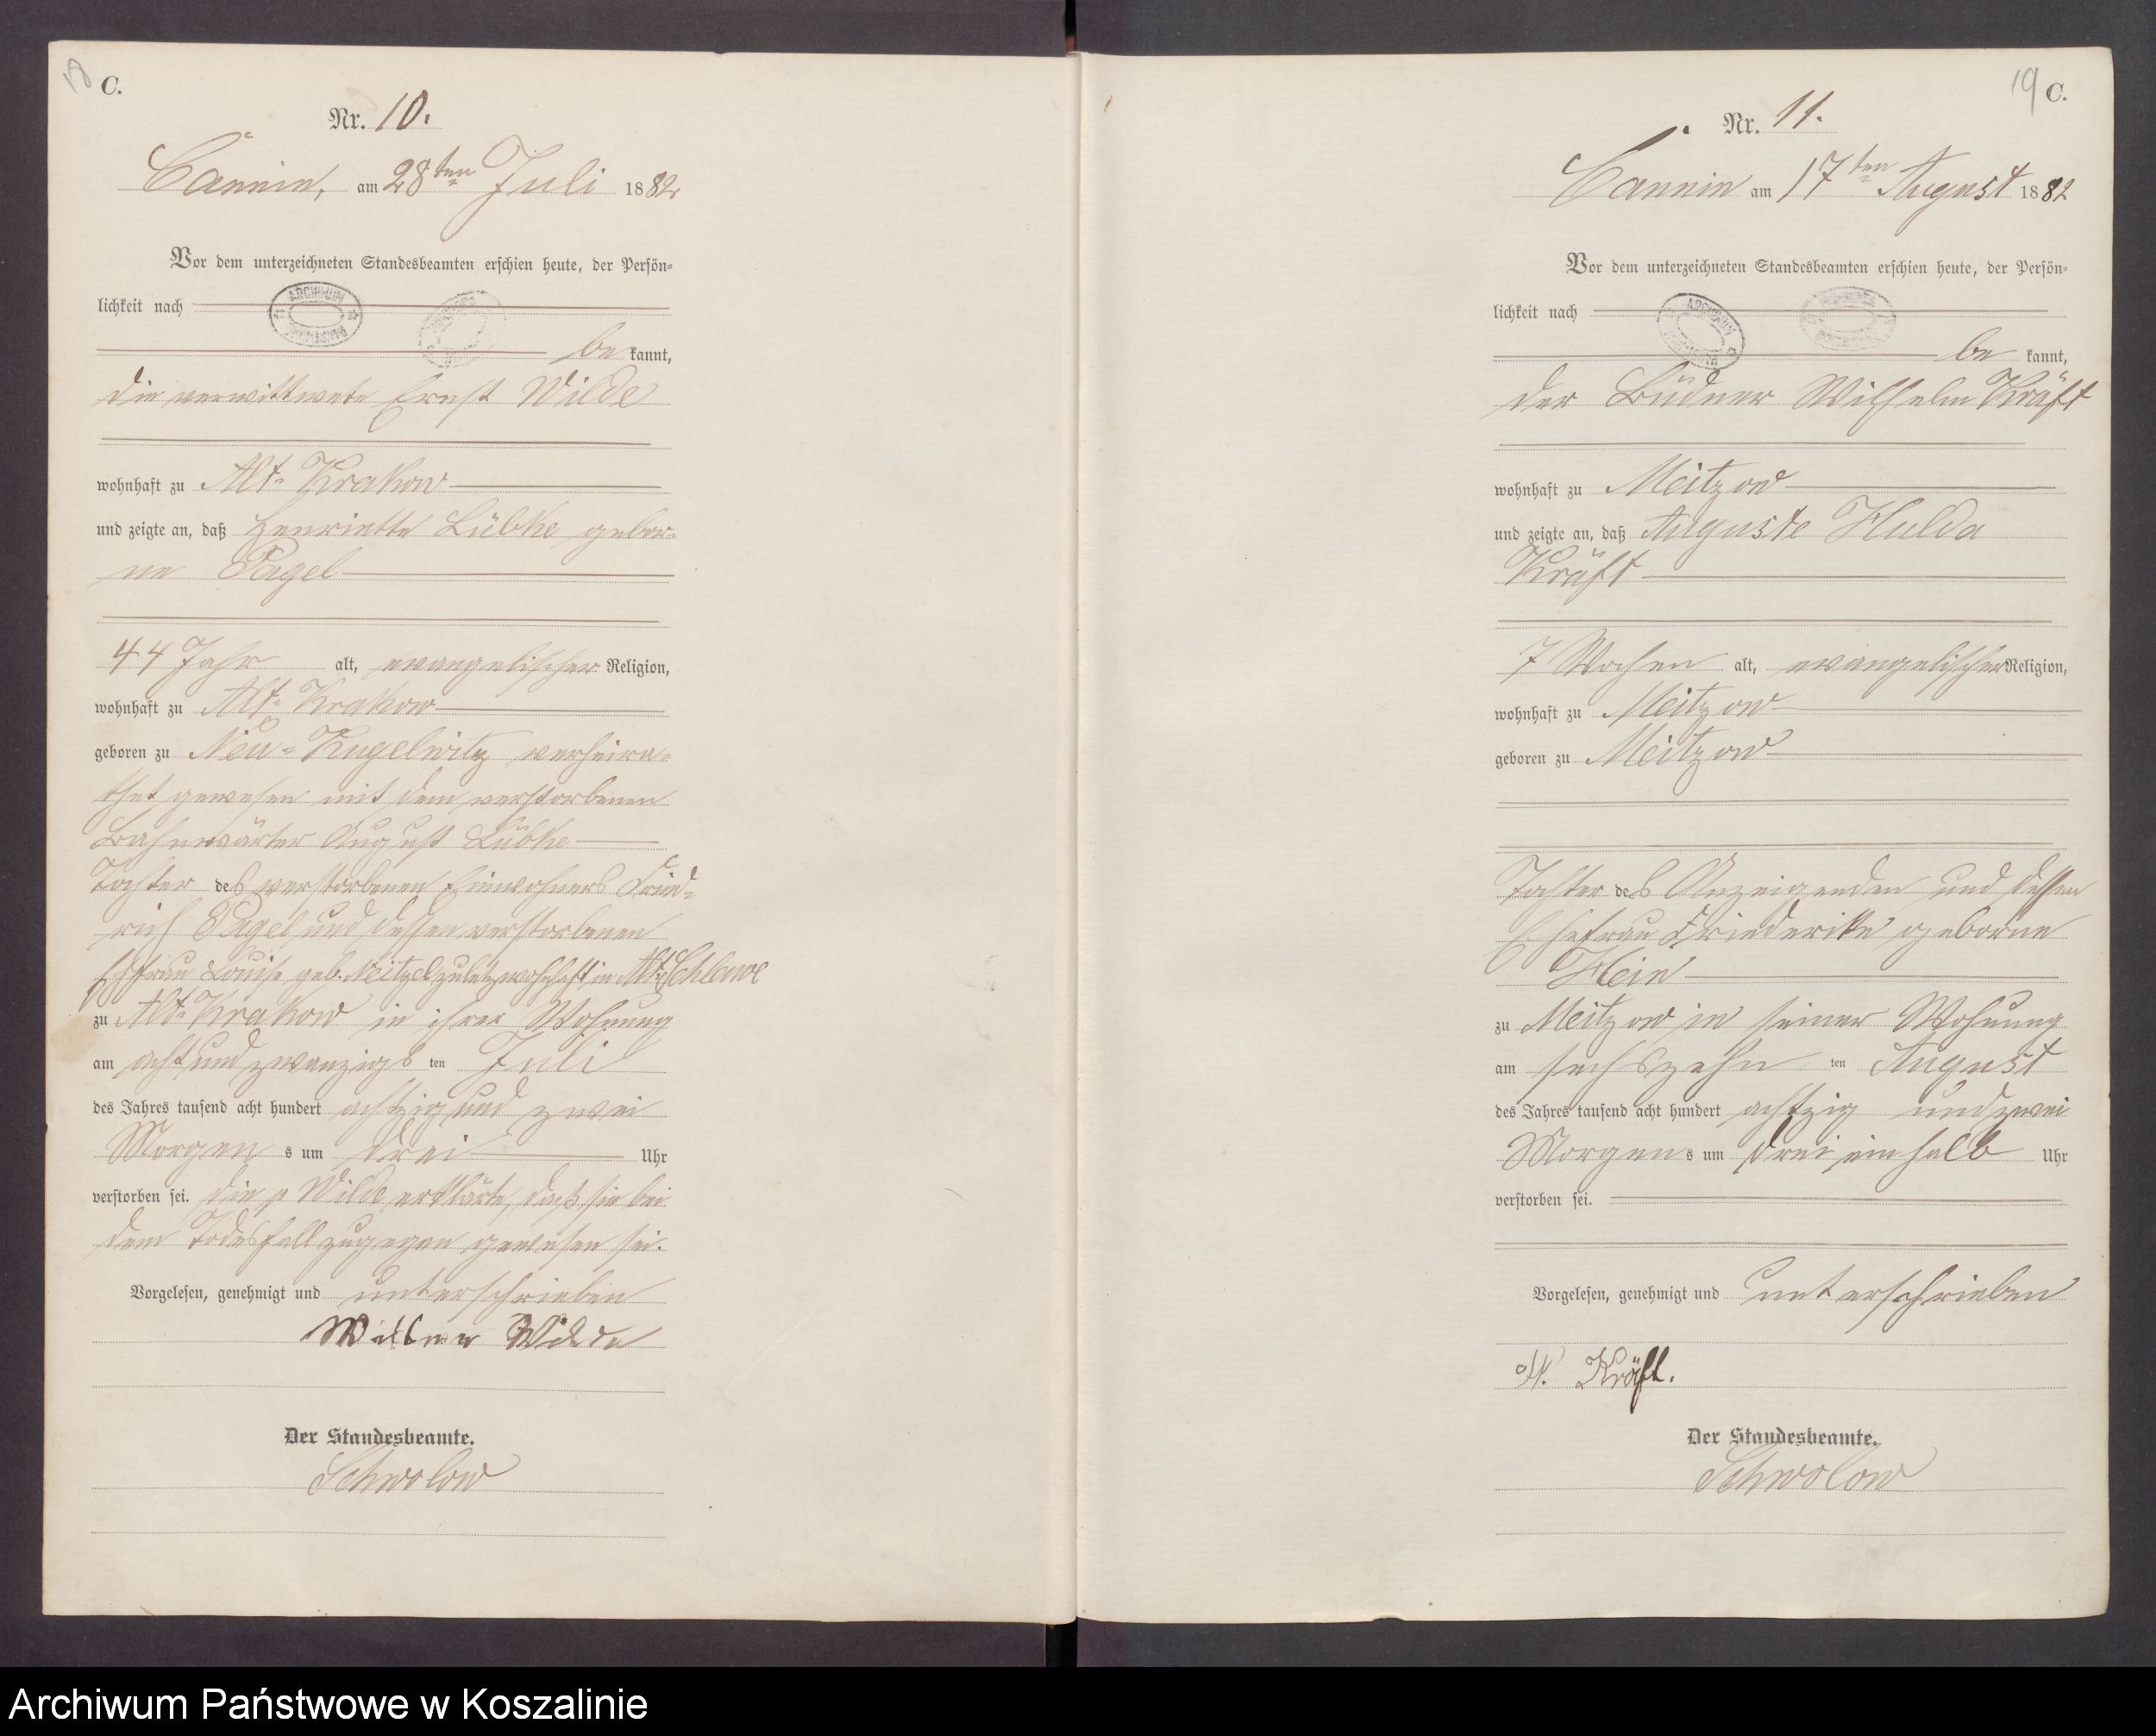 18 C.
Nr. 10.
Cannin, am 28ten Juli 1882
Vor dem unterzeichneten Standesbeamten erschien heute, der Persön=
lichkeit nach
be kannt,
die verwittwete Ernst Wilde
wohnhaft zu Alt-Krakow
und zeigte an, daß Henriette Lübke gebor=
ne Pagel
44 Jahr alt, evangelischer Religion,
wohnhaft zu Alt-Krakow
geboren zu Neu-Kugelwitz verheira=
thet gewesen mit dem verstorbenen
Bahnwärter August Lübke
Tochter des verstorbenen Einwohners Fried=
rich Pagel und dessen verstorbenen
Ehefrau Louise geb. Neitzel zuletzt wohnhaft in Alt-Schlawe
zu Alt-Krakow in ihrer Wohnung
am acht und zwanzigs ten Juli
des Jahres tausend acht hundert achtzig und zwei
Morgen s um drei Uhr
verstorben sei. die p Wilde erklärte, daß sie bei
dem Todesfall zugegen gewesen sei.
Vorgelesen, genehmigt und unterschrieben
Wilde
Der Standesbeamte.
Schwolow
19 C.
Nr. 11.
Cannin am 17ten August 1882
Vor dem unterzeichneten Standesbeamten erschien heute, der Persön=
lichkeit nach
be kannt,
der Büdner Wilhelm Kräft
wohnhaft zu Meitzow
und zeigte an, daß Auguste Hulda
Kräft
7 Wochen alt, evangelischer Religion,
wohnhaft zu Meitzow
geboren zu Meitzow
Tochter des Anzeigenden und dessen
Ehefrau Friederike geborne
Hein
zu Meitzow in seiner Wohnung
am sechszehn ten August
des Jahres tausend acht hundert achtzig und zwei
Morgen s um drei einhalb Uhr
verstorben sei.
Vorgelesen, genehmigt und unterschrieben
W. Kräft.
Der Standesbeamte.
Schwolow
Archiwum Państwowe w Koszalinie